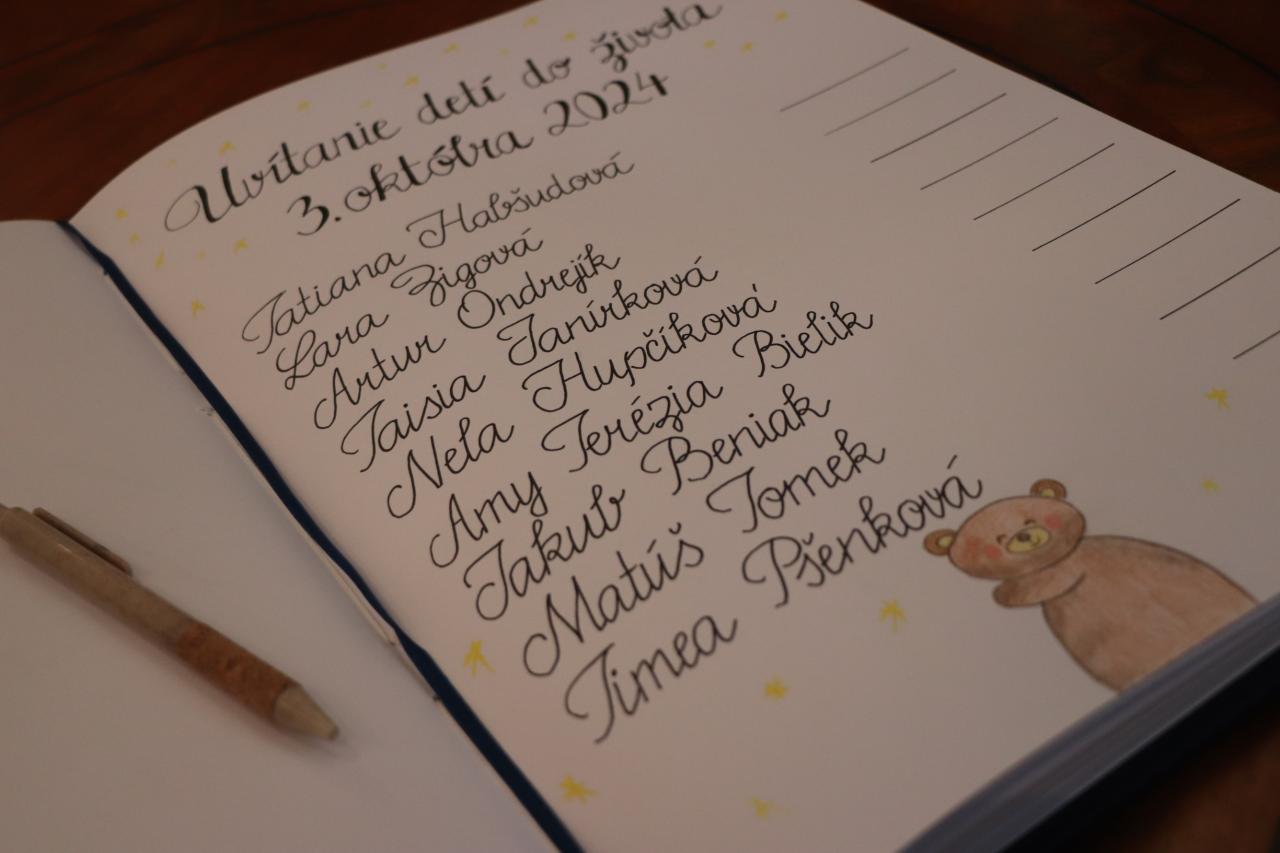 Uvítanie detí do života
3. októbra 2024
Tatiana Habšudová
Lara Zigová
Artur Ondrejík
Taisia Janírková
Nela Hupčíková
Amy Terézia Bielik
Jakub Beniak
Matúš Tomek
Timea Pšenková